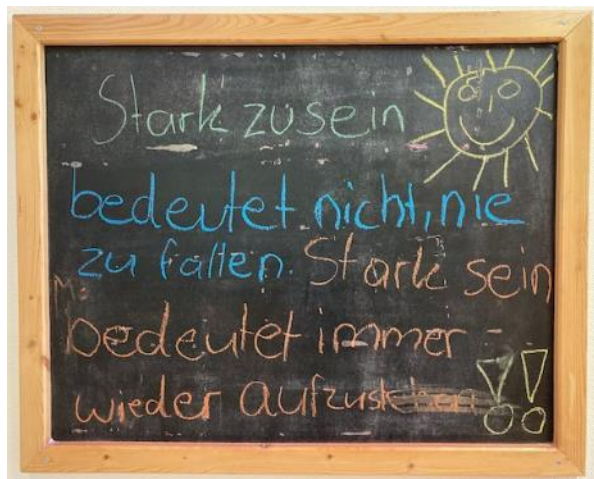 Stark zu sein
bedeutet nicht, nie
zu fallen. Stark sein
bedeutet immer -
wieder aufzustehen!!